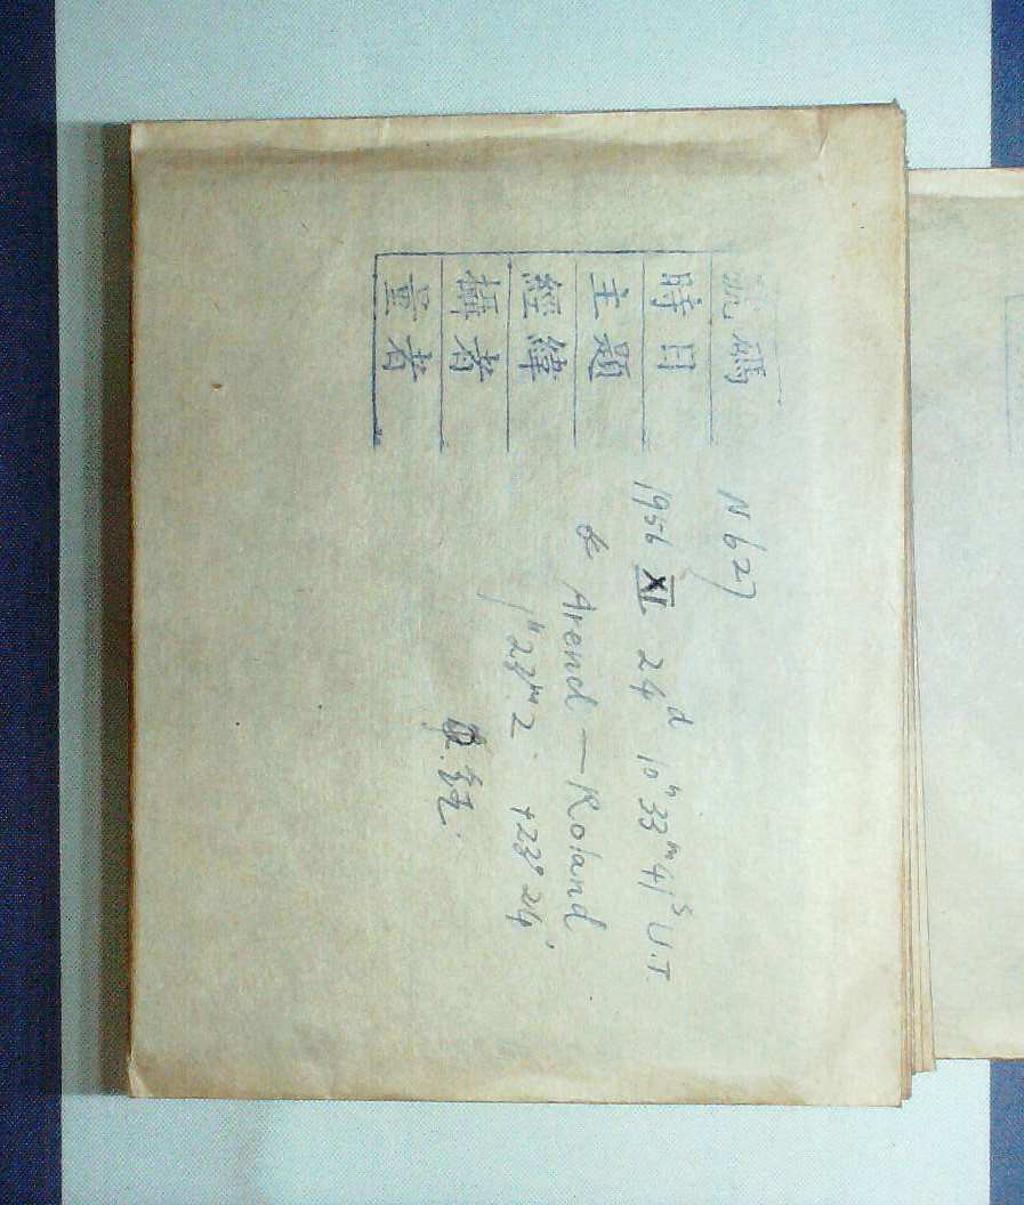 號碼 N 627
時日 1956 XI 24ᵈ 10ʰ 33ᵐ 41ˢ U.T.
主題 Arend — Roland
經緯 1ʰ 23ᵐ.2 +23° 24′
攝者
量者